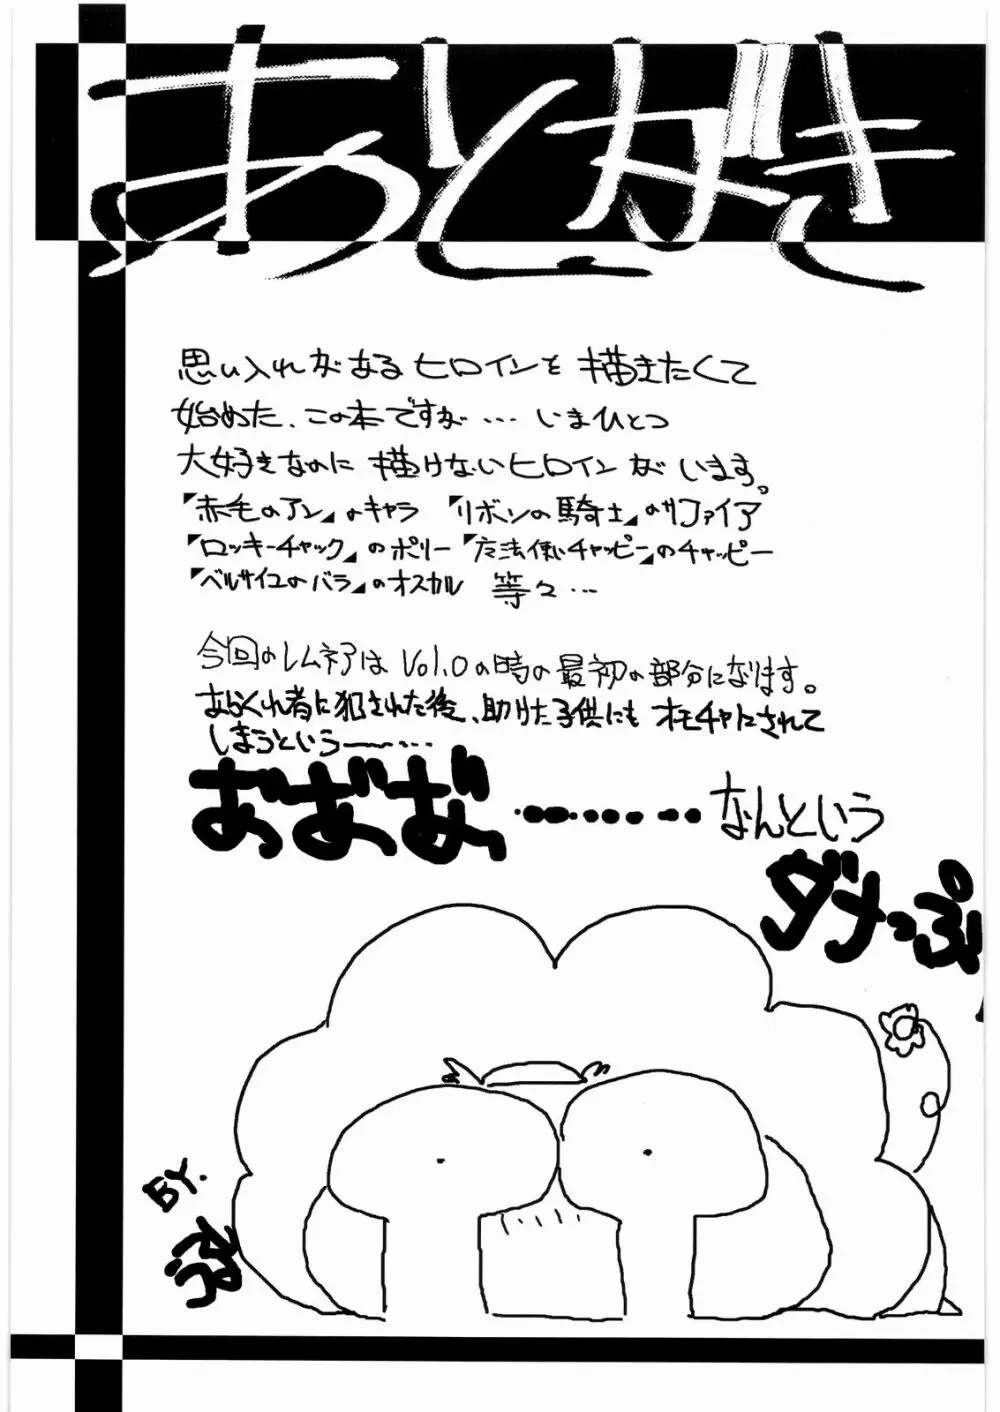 あとがき
思い入れがあるヒロインを描きたくて
始めた、この本ですが…いまひとつ
大好きなのに描けないヒロインがいます。
『赤毛のアン』のキャラ 『リボンの騎士』のサファイア
『ロッキーチャック』のポリー『魔法使いチャッピー』のチャッピー
『ベルサイユのバラ』のオスカル 等々…
今回のレムネアはVol.0の時の最初の部分になります。
あらくれ者に犯された後、助けた子供にもオモチャにされて
しまうという――……
おおお………なんという
ダナっぷり
BY.